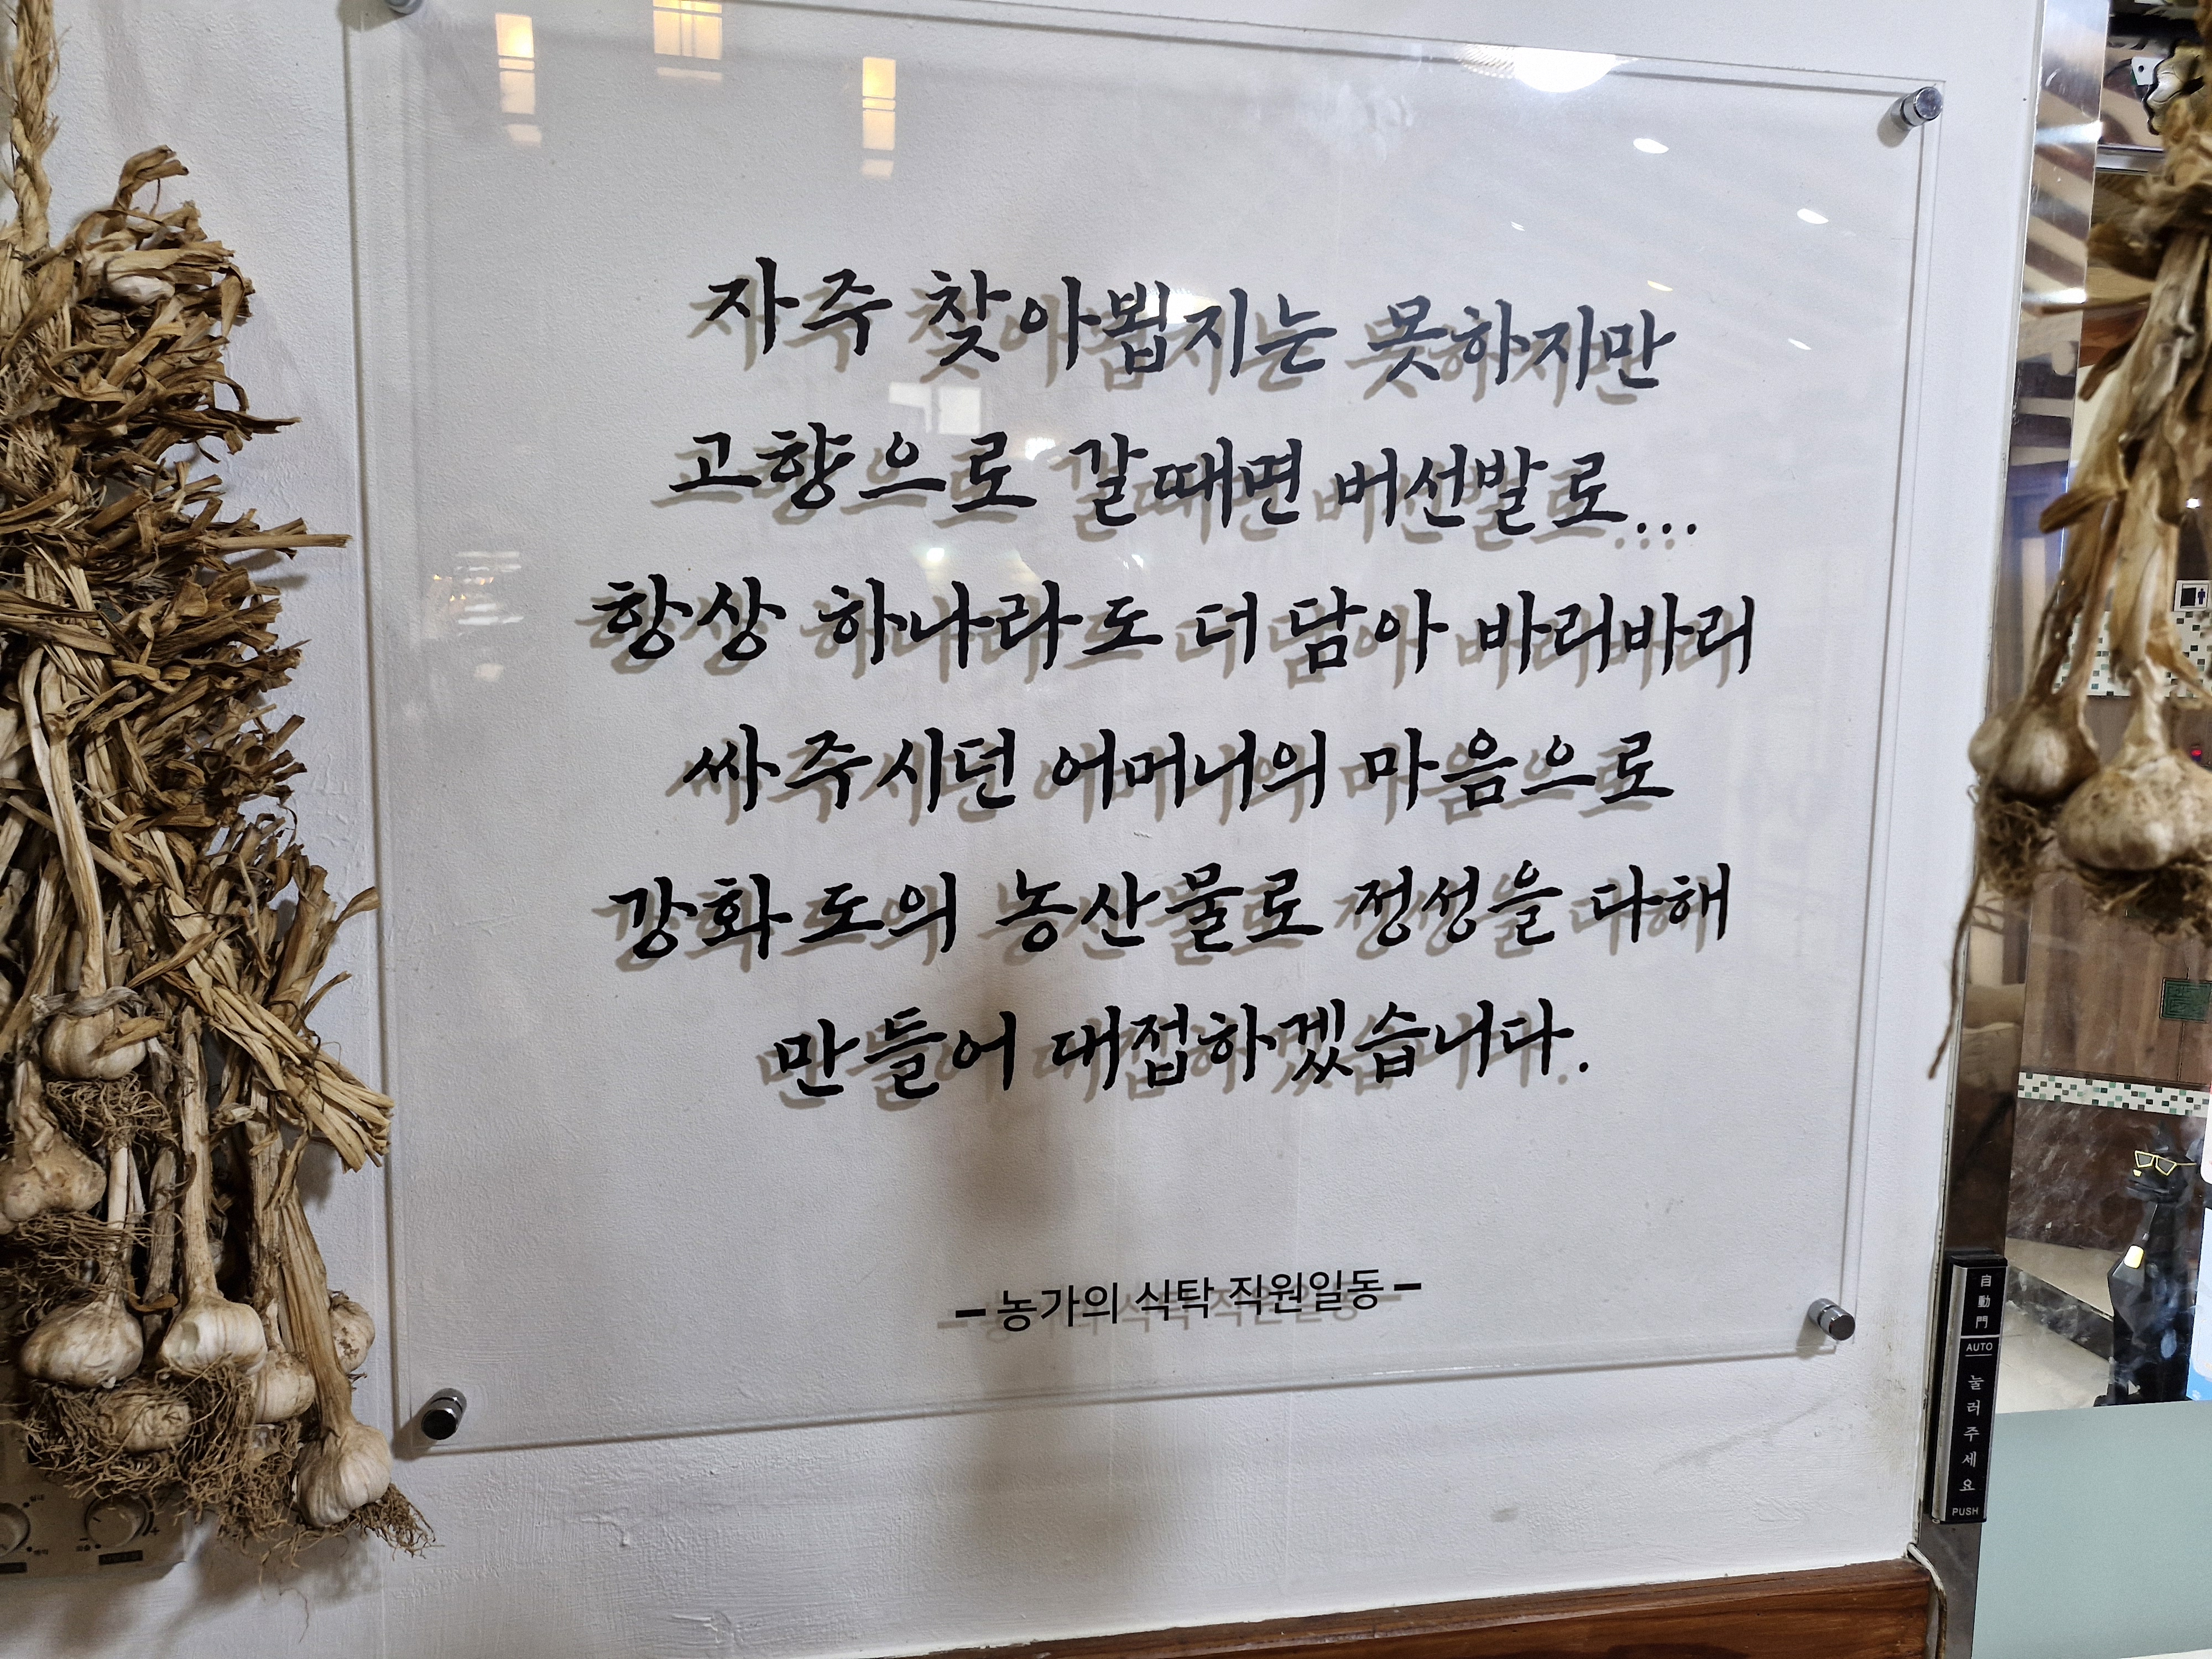 자주 찾아뵙지는 못하지만
고향으로 갈때면 버선발로...
항상 하나라도 더 담아 바리바리
싸주시던 어머니의 마음으로
강화도의 농산물로 정성을 다해
만들어 대접하겠습니다.
- 농가의 식탁 직원일동 -
自動門
AUTO
눌러주세요
PUSH